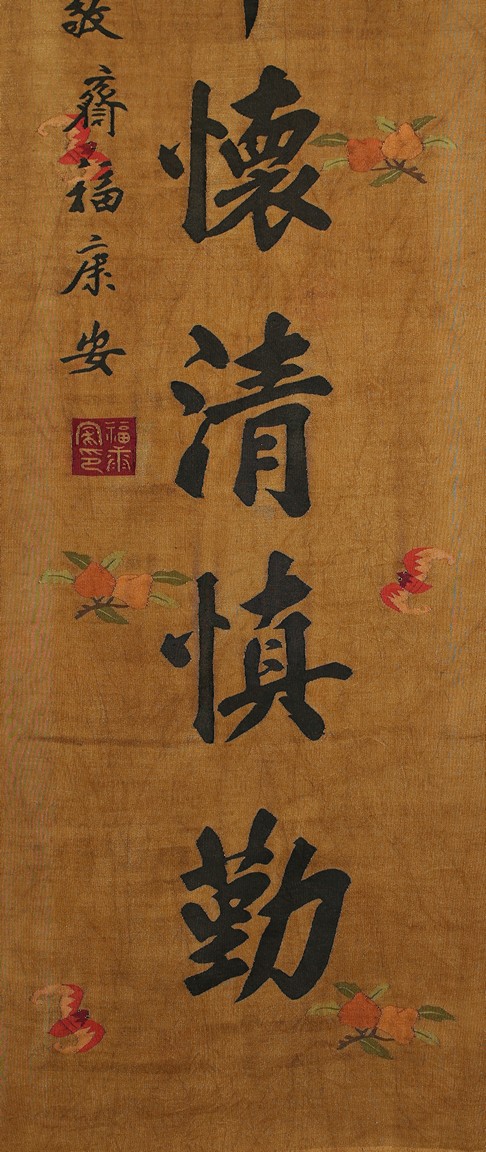 懷清慎勤
敬齋福康安
福康安印